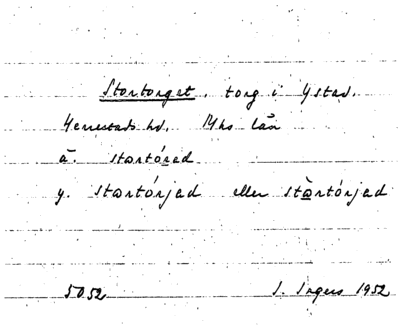 Stortorget, torg i Ystad.
Herrestads hd. Mhs län
ä. stœrtórad
y. stœrtórjad eller stœ̀rtórjad
5052 I. Ingers 1952